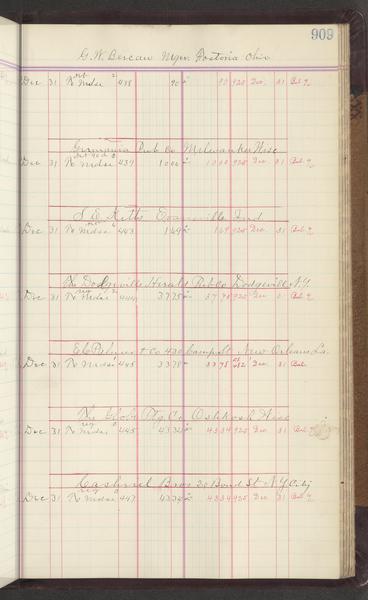 909
G. W. Bercaw Mgr. Fostoria Ohio
Dec 31 To Mdse 438 90 90 925 Dec 31 Bal
Germania Pub Co Milwaukee Wisc
Dec 31 To Mdse 439 10 00 10 00 925 Dec 31 Bal
S. E. Kitts Evansville Ind
Dec 31 To Mdse 443 1 49 1 49 925 Dec 31 Bal
The Dodgeville Herald Pub Co Dodgeville N.Y.
Dec 31 To Mdse 444 37 75 37 75 925 Dec 31 Bal
E. C. Palmer & Co 430 Camp St New Orleans La.
Dec 31 To Mdse 445 33 78 33 78 Dec 31 Bal
The Globe Ptg. Co Oshkosh Wisc
Dec 31 To Mdse 445 43 34 43 34 925 Dec 31 Bal
Bros 20 Bond St N.Y. City
Dec 31 To Mdse 447 43 34 43 34 925 Dec 31 Bal